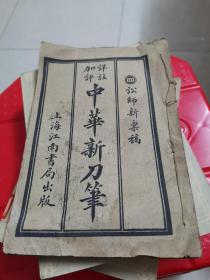 四
訟師新稟稿
詳註
加評
中華新刀筆
上海江南書局出版